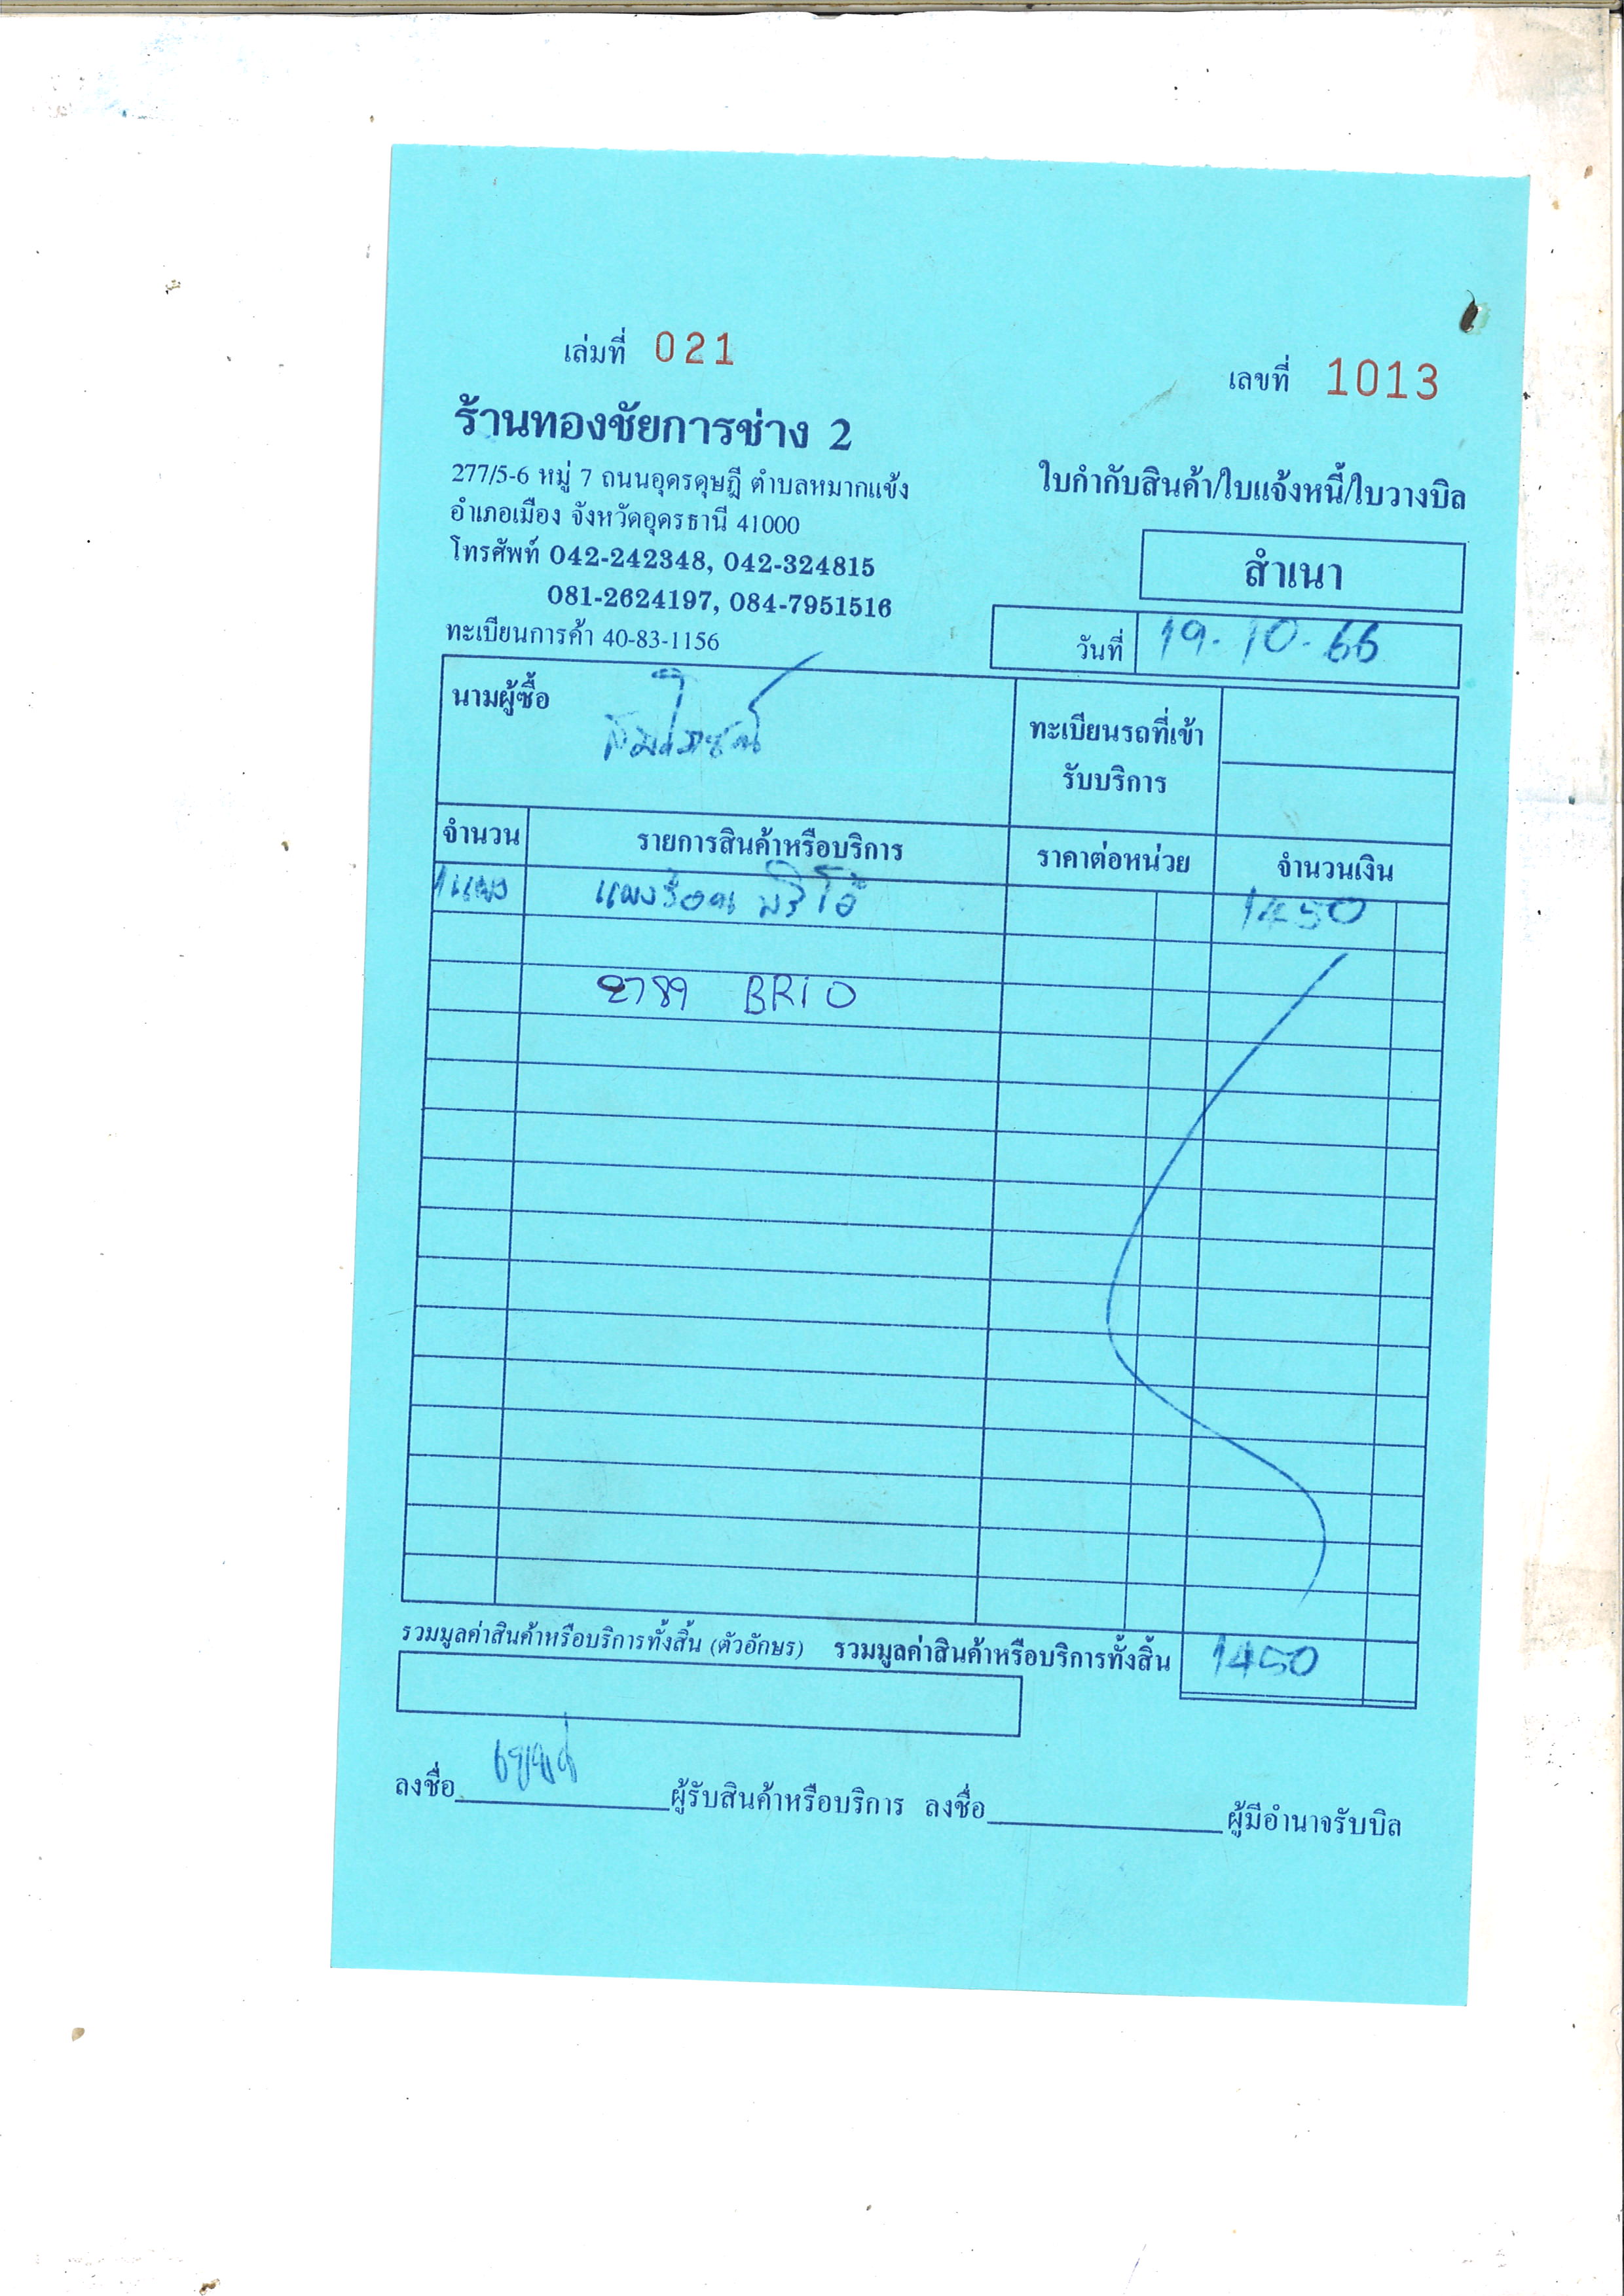 เล่มที่ 021
เลขที่ 1013
ร้านทองชัยการช่าง 2
277/5-6 หมู่ 7 ถนนอุดรดุษฎี ตำบลหมากแข้ง
อำเภอเมือง จังหวัดอุดรธานี 41000
โทรศัพท์ 042-242348, 042-324815
081-2624197, 084-7951516
ทะเบียนการค้า 40-83-1156
ใบกำกับสินค้า/ใบแจ้งหนี้/ใบวางบิล
สำเนา
วันที่ 19-10-66
นามผู้ซื้อ
ทะเบียนรถที่เข้า
รับบริการ
จำนวน รายการสินค้าหรือบริการ ราคาต่อหน่วย จำนวนเงิน
1แผง แผงร้อน บริโอ้ 1450
2789 BRiO
รวมมูลค่าสินค้าหรือบริการทั้งสิ้น (ตัวอักษร) รวมมูลค่าสินค้าหรือบริการทั้งสิ้น 1450
ลงชื่อ ผู้รับสินค้าหรือบริการ ลงชื่อ ผู้มีอำนาจรับบิล